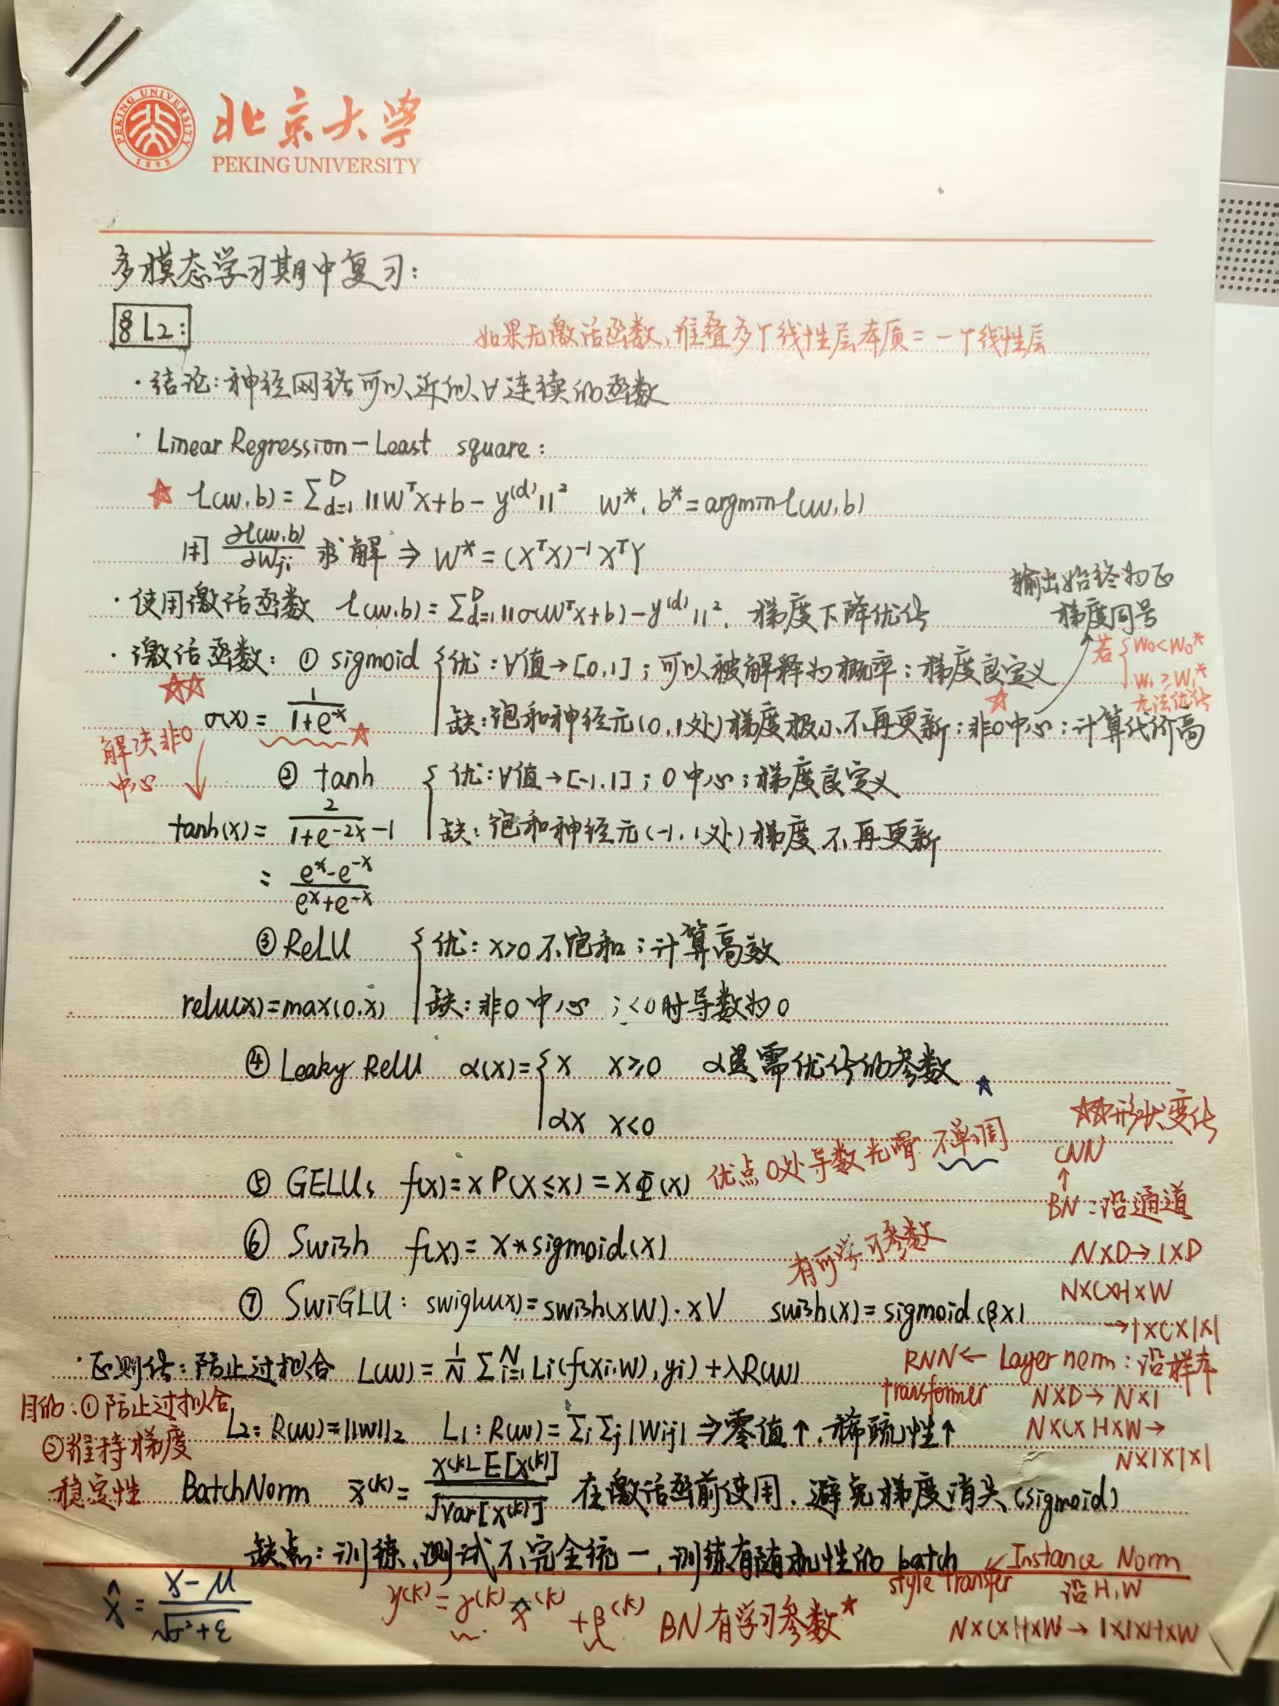 PEKING UNIVERSITY
1898
北京大学
PEKING UNIVERSITY
多模态学习期中复习:
§ L2:
如果无激活函数,堆叠多个线性层本质=一个线性层
·结论:神经网络可以近似∀连续的函数
· Linear Regression - Least square:
☆ l(w,b) = Σ_{d=1}^{D} ||W^T x + b - y^(d)||² W*, b* = argmin l(w,b)
用 ∂l(w,b)/∂w_ji 求解 ⇒ W* = (X^T X)^-1 X^T Y
输出始终为正
梯度同号
·使用激活函数 l(w,b) = Σ_{d=1}^{D} ||σ(W^T x + b) - y^(d)||², 梯度下降优化
若 { w0 < w0*
w1 ≥ w1*
无法优化
·激活函数: ① sigmoid { 优: ∀值→[0,1]; 可以被解释为概率; 梯度良定义
☆☆
σ(x) = 1/(1+e^-x) ☆ 缺: 饱和神经元(0,1处)梯度极小不再更新; 非0中心; 计算代价高
解决非0
中心
② tanh { 优: ∀值→[-1,1]; 0中心; 梯度良定义
tanh(x) = 2/(1+e^-2x) - 1 缺: 饱和神经元(-1,1处)梯度不再更新
= (e^x - e^-x)/(e^x + e^-x)
③ ReLU { 优: x>0不饱和; 计算高效
relu(x)=max(0,x) 缺: 非0中心 ; <0时导数为0
④ Leaky ReLU α(x) = { x x≥0 α是需优化的参数 ☆
αx x<0
⑤ GELUs f(x) = x P(X≤x) = xΦ(x) 优点0处导数光滑 不单调
⑥ Swish f(x) = x*sigmoid(x)
有可学习参数
⑦ SwiGLU: swiglu(x) = swish(xW)·xV swish(x) = sigmoid(βx)
☆☆形状变化
CNN
↑
BN:沿通道
N×D→1×D
N×C×H×W
→1×C×1×1
·正则化:防止过拟合 L(w) = 1/N Σ_{i=1}^{N} Li(f(xi,W),yi) + λR(W)
RNN← Layer norm: 沿样本
transformer N×D→N×1
N×C×H×W→
N×1×1×1
目的:①防止过拟合
②维持梯度
稳定性
L2: R(W) = ||W||₂ L1: R(W) = Σi Σj |Wij| ⇒ 零值↑, 稀疏性↑
BatchNorm x̂^(k) = (x^(k) - E[x^(k)])/√Var[x^(k)] 在激活函前使用, 避免梯度消失(sigmoid)
缺点:训练、测试不完全统一,训练有随机性的batch
← Instance Norm
style transfer 沿H,W
N×C×H×W→1×1×H×W
x̂ = (x-μ)/√(σ²+ε)
y^(k) = γ^(k) x̂^(k) + β^(k) BN有学习参数☆